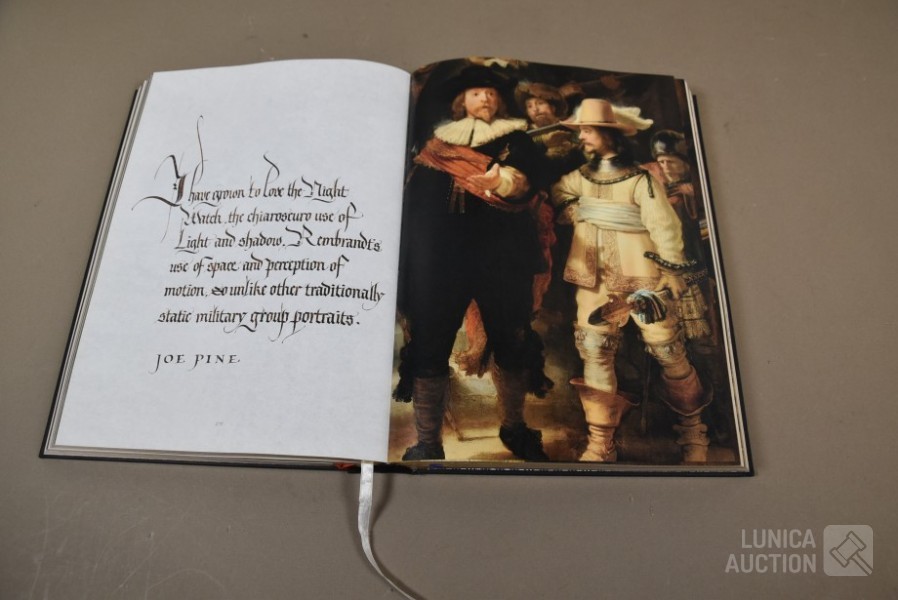 I have grown to love the Night
Watch, the chiaroscuro use of
Light and shadow. Rembrandt's
use of space and perception of
motion, so unlike other traditionally
static military group portraits.
JOE PINE.
LUNICA
AUCTION